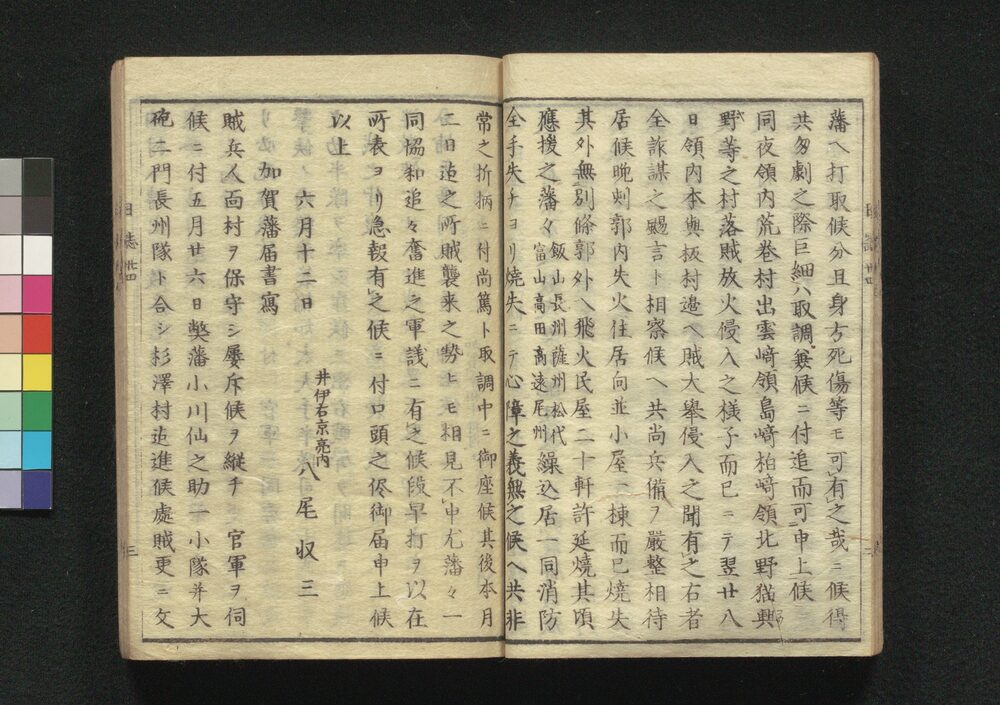 藩ヘ打取候分且身方死傷等モ可有之哉ニ候得
共匆劇之際巨細ハ取調兼候ニ付追而可申上候
同夜領内荒巻村出雲﨑領島﨑柏﨑領北野猶興
野等之村落賊放火侵入之様子而已ニテ翌廿八
日領内本與板村邉ヘ賊大舉侵入之聞有之右者
全詐謀之颺言ト相察候ヘ共尚兵備ヲ嚴整相待
居候晩刺郭内失火住居向並小屋二棟而已燒失
其外無別條郭外ヘ飛火民屋二十軒許延燒其頃
應援之藩々飯山長州薩州松代
富山高田高遠尾州繰込居一同消防
全手失チヨリ燒失ニテ心障之義無之候ヘ共非
常之折柄ニ付尚篤ト取調中ニ御座候其後本月
二日迠之所賊襲来之勢ヒモ相見不申尤藩々一
同協和追々奮進之軍議ニ有之候段早打ヲ以在
所表ヨリ急報有之候ニ付口頭之侭御届申上候
以上
六月十二日
井伊右京亮内
八尾収三
加賀藩届書寫
賊兵人面村ヲ保守シ屡斥候ヲ縦チ 官軍ヲ伺
候ニ付五月廿六日獘藩小川仙之助一小隊并大
砲二門長州隊ト合シ杉澤村迠進候處賊更ニ文
日誌 廿四
三